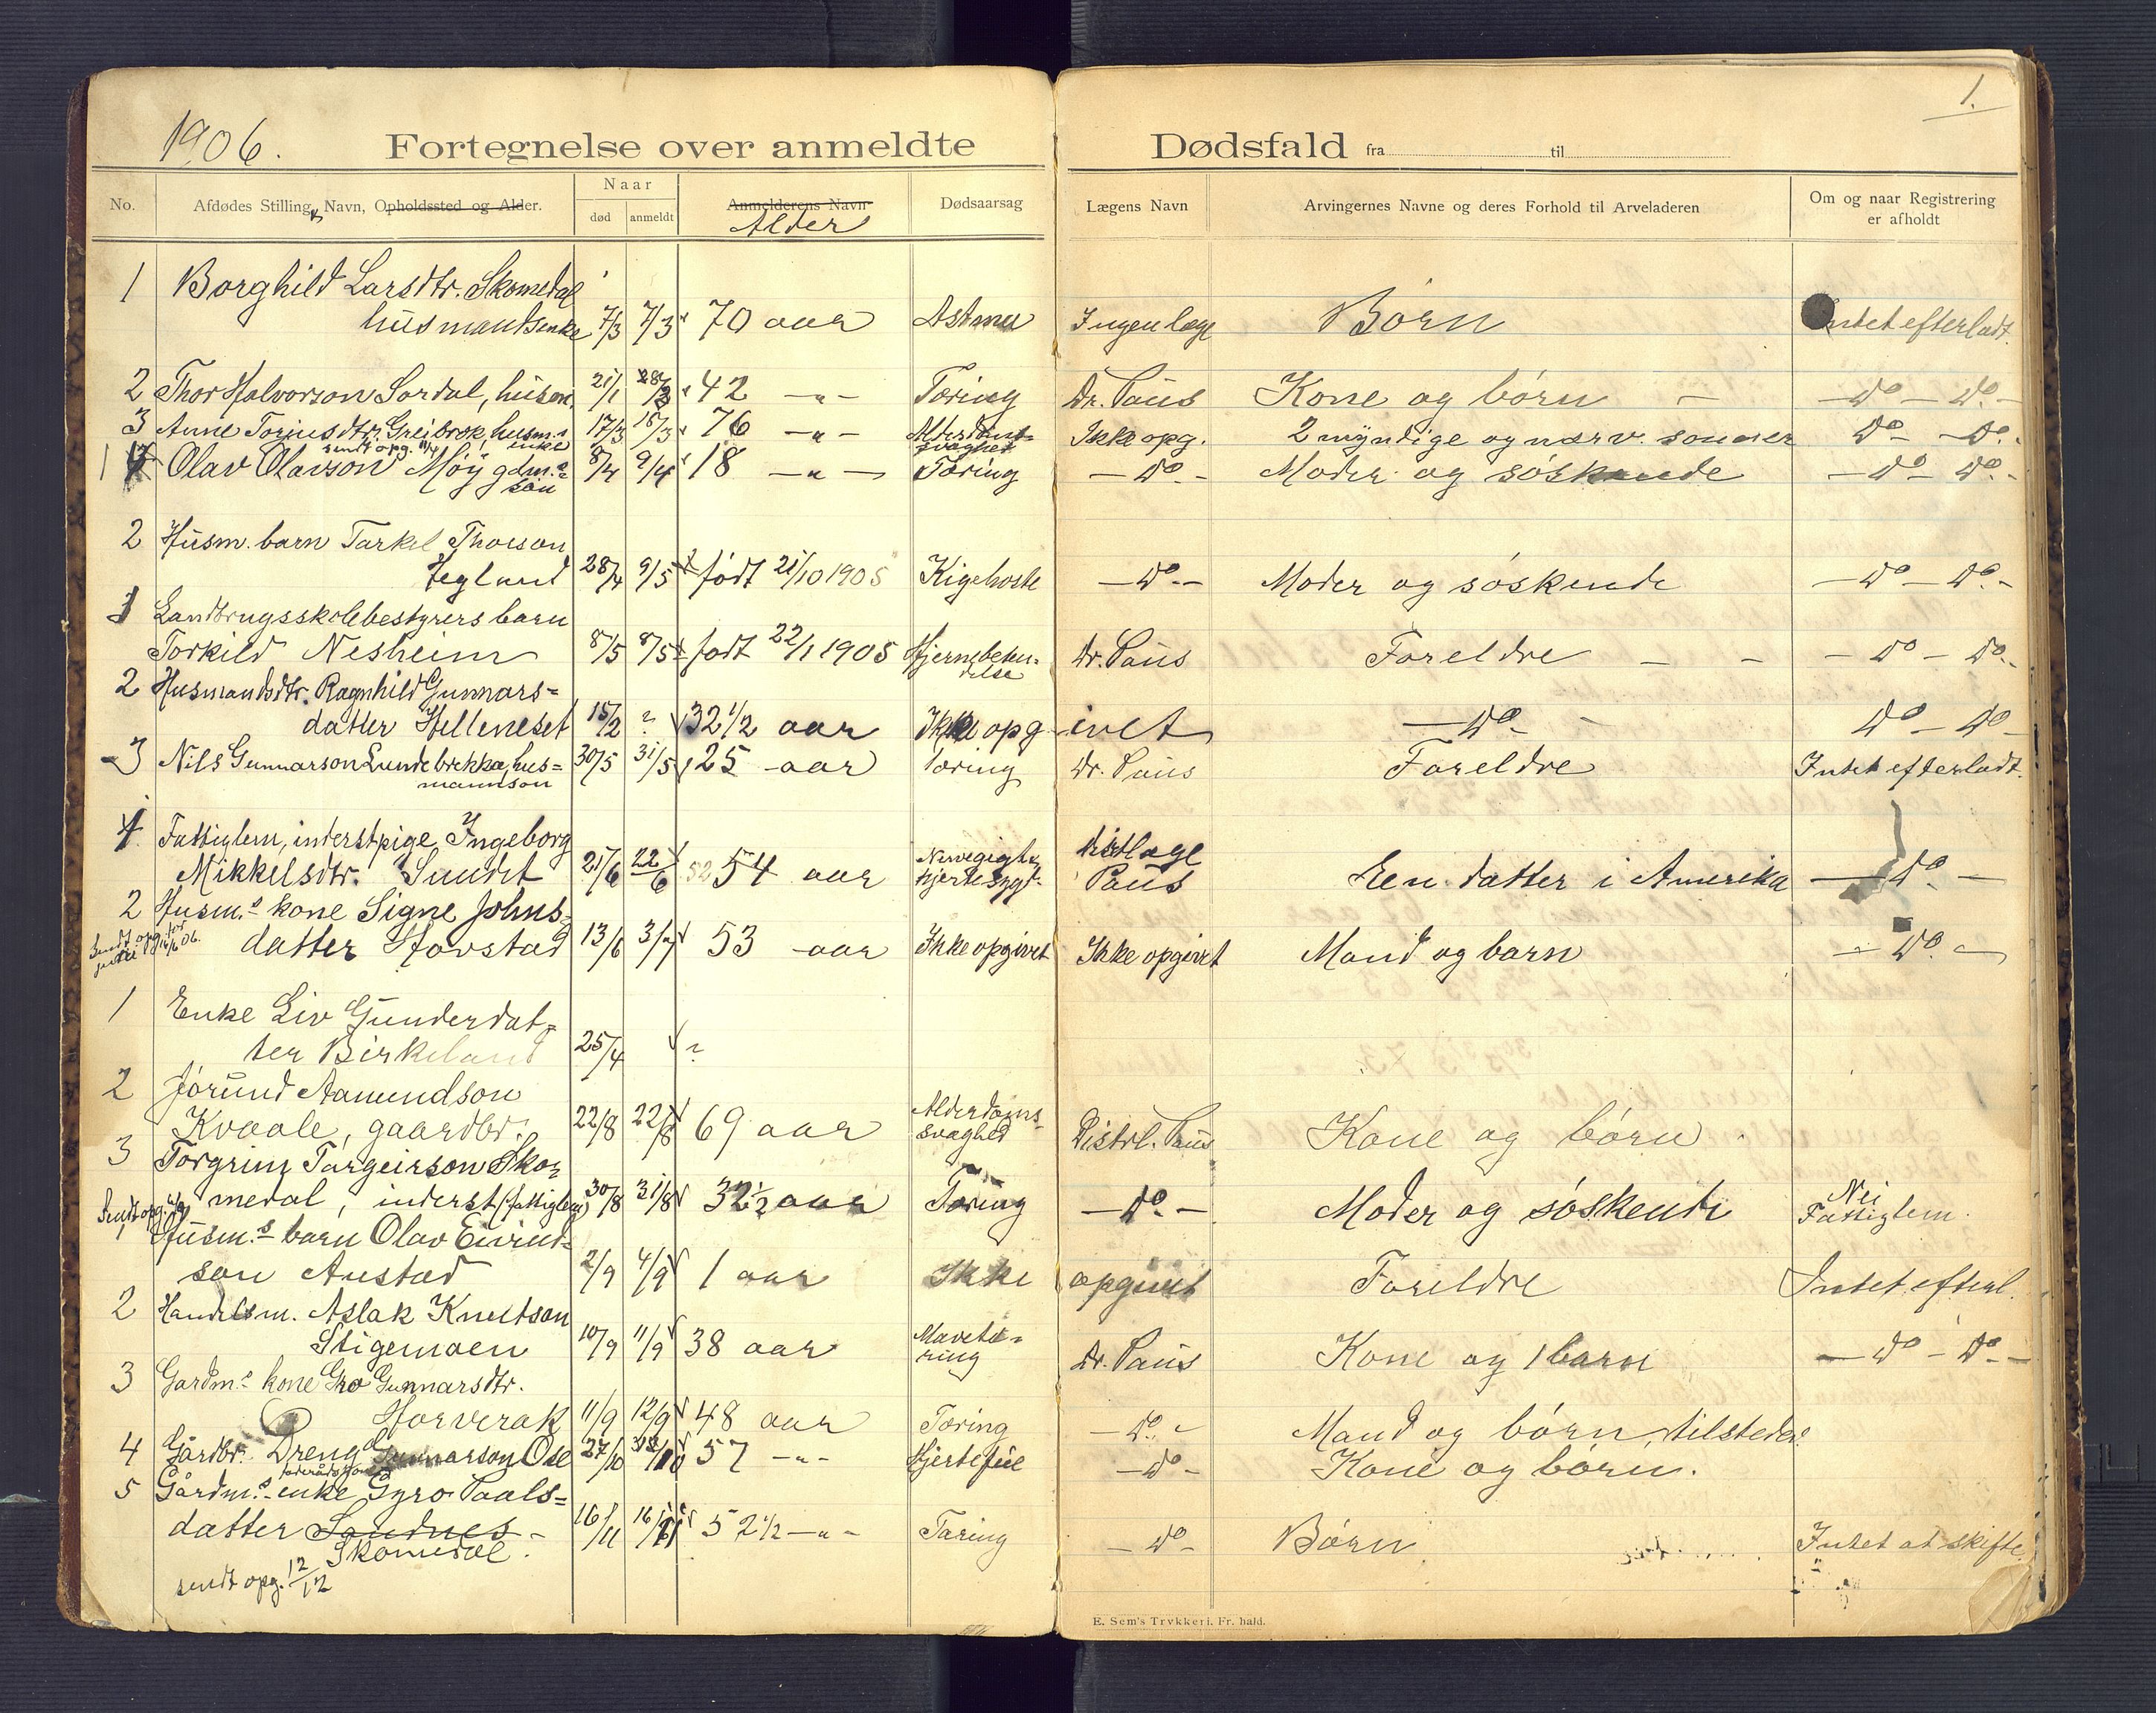 1.
1906.
Fortegnelse over anmeldte Dødsfald fra til
No. Afdødes Stilling, & Navn, Opholdssted og Alder. Naar død anmeldt Anmelderens Navn Alder Dødsaarsag Lægens Navn Arvingernes Navne og deres Forhold til Arveladeren Om og naar Registrering er afholdt
1 Borghild Larsdtr. Skomedal
husmandsenke 7/3 7/3 70 aar Astma Ingen læge Børn Intet efterladt.
2 Thor Halvorson Sordal, husm. 21/1 28/2 42 -"- Tæring Dr. Paus Kone og børn - do - do. -
3 Anne Torjusdtr. Greibrok husm.s enke 17/3 18/3 76 -"- Alderdoms= svaghed Ikke opg. 2 myndige og nærv. sønner do - do.
sendt opg. 11/4
1 4 Olav Olavson Møy gdm.s søn 8/4 9/4 18 -"- Tæring - do. - Moder og søskende - do - do. -
2 Husm. barn Tarkel Thorson
Hegland 28/4 9/5 født 21/10 1905 Kighoste - do. - Moder og søskende - do - do. -
3 Landbrugsskolebestyrers barn
Torkild Nesheim 8/5 8/5 født 22/1 1905 Hjernebetæn= delse Dr. Paus Foreldre - - - do - do. -
2 Husmandsdtr. Ragnhild Gunnars=
datter Helleneset 15/2 ? 32 1/2 aar Ikke opgivet - do - do - do -
3 Nils Gunnarson Lundebrekka, hus= mannsøn 30/5 31/5 25 aar Tæring Dr. Paus Foreldre Intet efterladt.
4 Fattiglem, inderstpige Ingeborg
Mikkelsdtr. Sundet 21/6 22/6 52 54 aar Nervegigt & hjertesygd. Distlæge Paus Een datter i Amerika - do. -
2 Husm.s kone Signe Johns=
datter Hovstad 13/6 3/7 53 aar Ikke opgivet Ikke opgivet Mand og barn - do. -
Sendt opg. 14/6 06.
1 Enke Liv Gunderdat=
ter Birkeland 25/4 ?
2 Jørund Aamundson
Kvaale, gaardbr. 22/8 22/8 69 aar Alderdoms= svaghed Distrl. Paus Kone og børn.
3 Torgrim Targeirson Sko=
medal, inderst (fattiglem) 30/8 31/8 32 1/2 aar Tæring - do. - Moder og søskende Nei Fattiglem.
Sendt opg.
Husm.s barn Olav Eivind=
søn Austad 2/9 4/9 1 aar Ikke opgivet Foreldre Intet efterl.
2 Handelsm. Aslak Knutson
Stigemoen 10/9 11/9 38 aar Mavetæ= ring Dr. Paus Kone og 1 barn - do - do. -
3 Gardm.s kone Gro Gunnarsdtr.
Horverak 11/9 12/9 48 aar Tæring - do. - Mand og børn, tilstede.
4 Gårdbr. Dreng Gunnarson Ose 27/10 57 -"- Hjertefeil - do - Kone og børn.
5 Gårdm.s enke Gyro Paals=
datter Sandnes - Skomedal. 16/11 16/11 52 1/2 -"- Tæring - do - Børn. Intet at skifte.
sendt opg. 12/12
E. Sem's Trykkeri. Fr. hald.